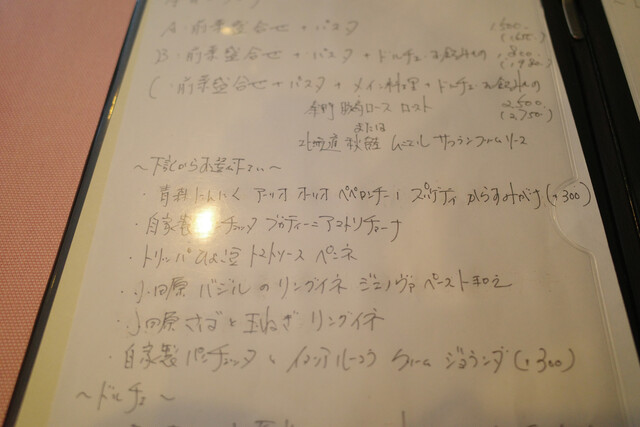 A. 前菜盛合せ + パスタ 1,500. (1,650.)
B. 前菜盛合せ + パスタ + ドルチェ 1,800. (1,980)
C. 前菜盛合せ + パスタ + メイン料理 + ドルチェ
豚肩ロース ロースト 2,500. (2,750)
または
北海道 秋鮭 ムニエル サフランクリームソース
~下記からお選び下さい~
・青森にんにく アーリオ オーリオ ペペロンチーノ スパゲティ からすみがけ (+300)
・自家製 パンチェッタ ブカティーニ アマトリチャーナ
・トリッパ ひよこ豆 トマトソース ペンネ
・小田原 バジルのリングイネ ジェノヴァペースト和え
・小田原 さざえと玉ねぎ リングイネ
・自家製 パンチェッタ と クリーム (+300)
~ドルチェ~